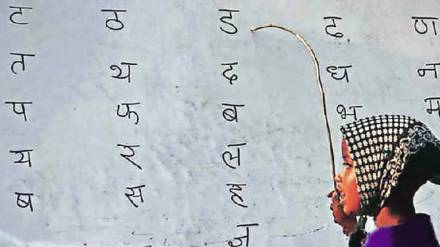 ट ठ ड ढ ण
त थ द ध न
प फ ब भ म
य ल
ष स